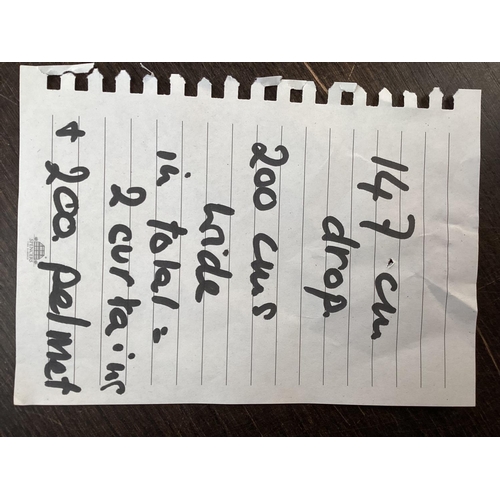 147 cm
drop.
200 cms
wide
in total =
2 curtains
+ 200. pelmet